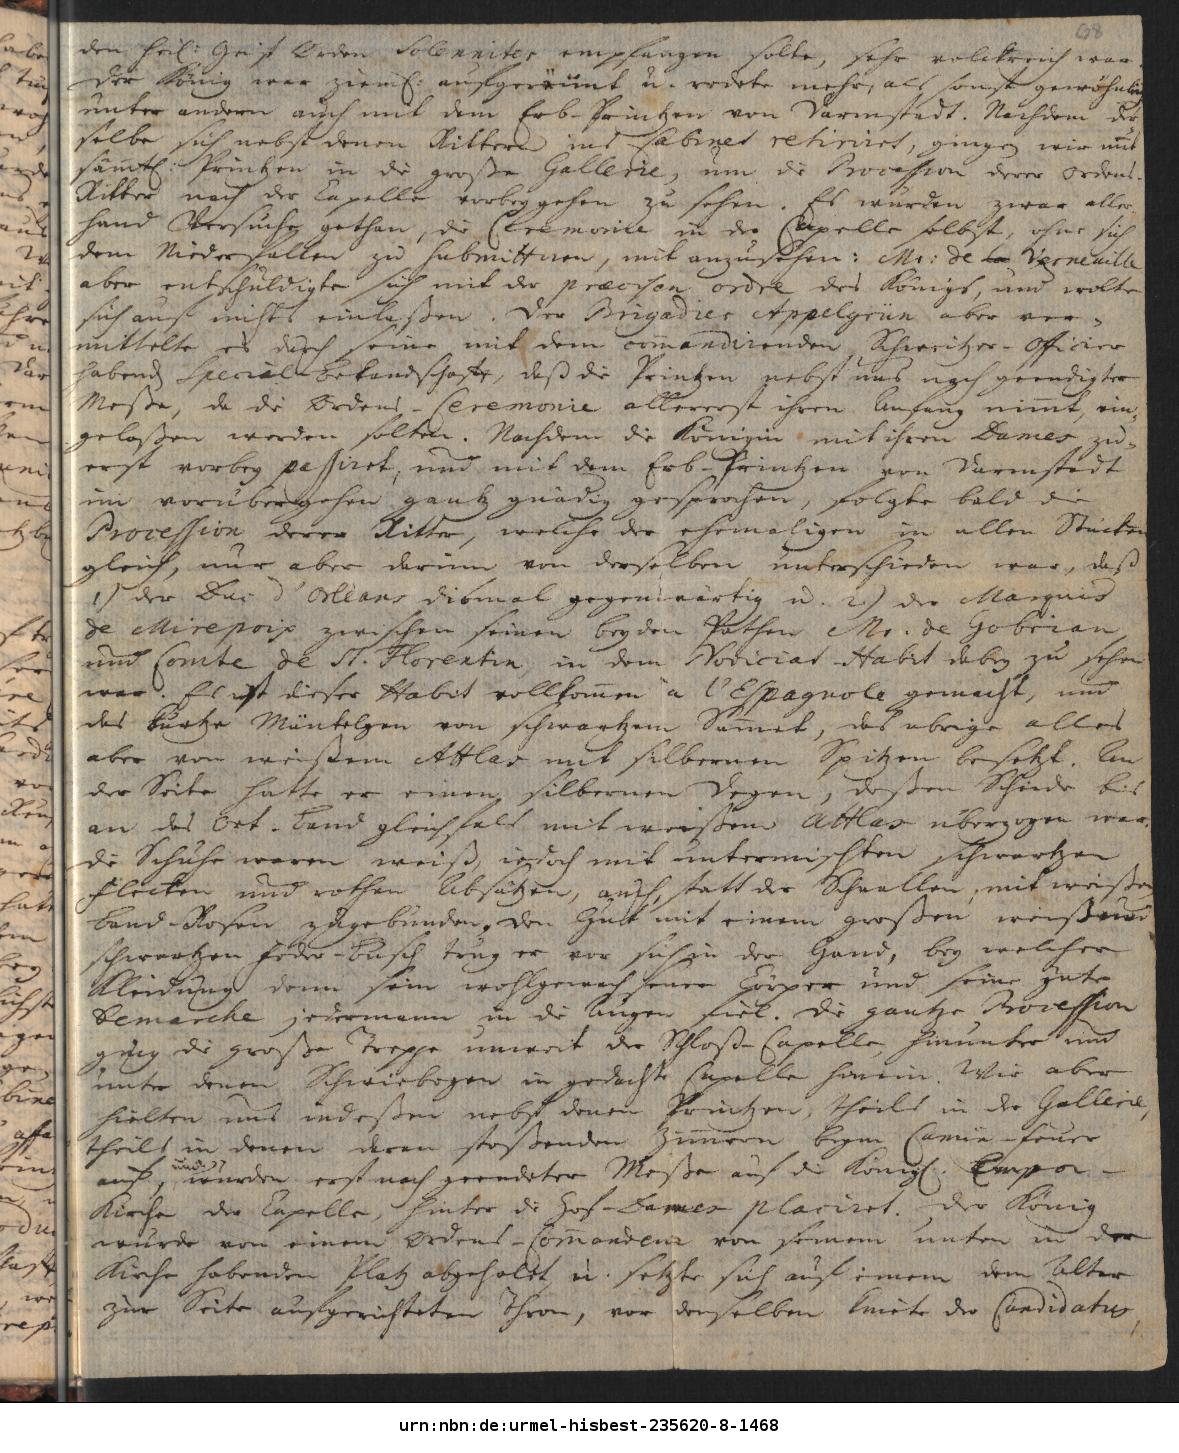 68
den heil: Geist Orden Solenniter empfangen solte, sehr volckreich war.
Der König war zieml: aufgeräumt u. redete mehr, als sonst gewöhnlich
unter andern auch mit dem Erb-Printzen von Darmstadt. Nachdem der
selbe sich nebst denen Rittern ins Cabinet retiriret, gingen wir mit
sämtl: Printzen in die große Gallerie, um die Procession derer Ordens-
Ritter nach der Capelle vorbeygehen zu sehen. Es wurden zwar aller
hand Versuche gethan, die Ceremonie in der Capelle selbst, ohne sich
dem Niederfallen zu submittiren, mit anzusehen: Mr: de Verneuille
aber entschuldigte sich mit der precisen ordre des Königs, und wolte
sich auf nichts einlaßen. Der Brigadier Appelgrün aber ver-
mittelte es durch seine mit dem commandirenden Schweitzer-Officier
habende Special-bekandschafft, daß die Printzen nebst uns nach geendigter
Meße, da die Ordens-Ceremonie allererst ihren Anfang nimt, ein-
gelaßen werden solten. Nachdem die Königin mit ihren Dames zu-
erst vorbey passiret, und mit dem Erb-Printzen von Darmstadt
im vorübergehen gantz gnädig gesprochen, folgte bald die
Procession derer Ritter, welche der ehemaligen in allen Stücken
gleich, nur aber darinn von derselben unterschieden war, daß
1) der Duc d'Orleans dismal gegenwärtig u. 2.) der Marquis
de Mirepoix zwischen seinen beyden Pathen Mr. de Gobrian
und Comte de St. Florentin, in dem Noviciat-Habit dabey zu sehen
war. Es ist dieser Habit vollkommen a l'Espagnole gemacht, und
das kurtze Mäntelgen von schwartzem Sammet, das übrige alles
aber von weißem Attlas mit silbernen Spitzen besetzt. An
der Seite hatte er einen silbernen Degen, deßen Scheide bis
an das Ort-band gleichfals mit weißem Attlas überzogen war.
die Schuhe waren weiß, iedoch mit untermischten schwartzen
Flecken und rothen Absätzen, auch, statt der Schnallen, mit weißen
band-Rosen zugebunden. Den Hut mit einem großen weiß und
schwartzen Feder-busch trug er vor sich in der Hand, bey welcher
Kleidung denn sein wohlgewachsener Cörper und seine gute
Demarche jedermann in die Augen fiel. Die gantze Procession
ging die große Treppe unweit der Schloß-Capelle hinunter und
unter denen Schwiebogen in gedachte Capelle hinein. Wir aber
hielten uns indeßen nebst denen Printzen, theils in der Gallerie,
theils in denen daran stoßenden Zimmern beym Camin-feuer
auf, und wurden erst nach geendeter Meße auf die Königl. Empor-
Kirche der Capelle, hinter die Hof-Dames placiret. Der König
wurde von einem Ordens-Commandeur von seinem unten in der
Kirche habenden Platz abgeholet, u. setzte sich auf einem dem Altar
zur Seite aufgerichteten Thron, vor denselben kniete der Candidatus,
urn:nbn:de:urmel-hisbest-235620-8-1468